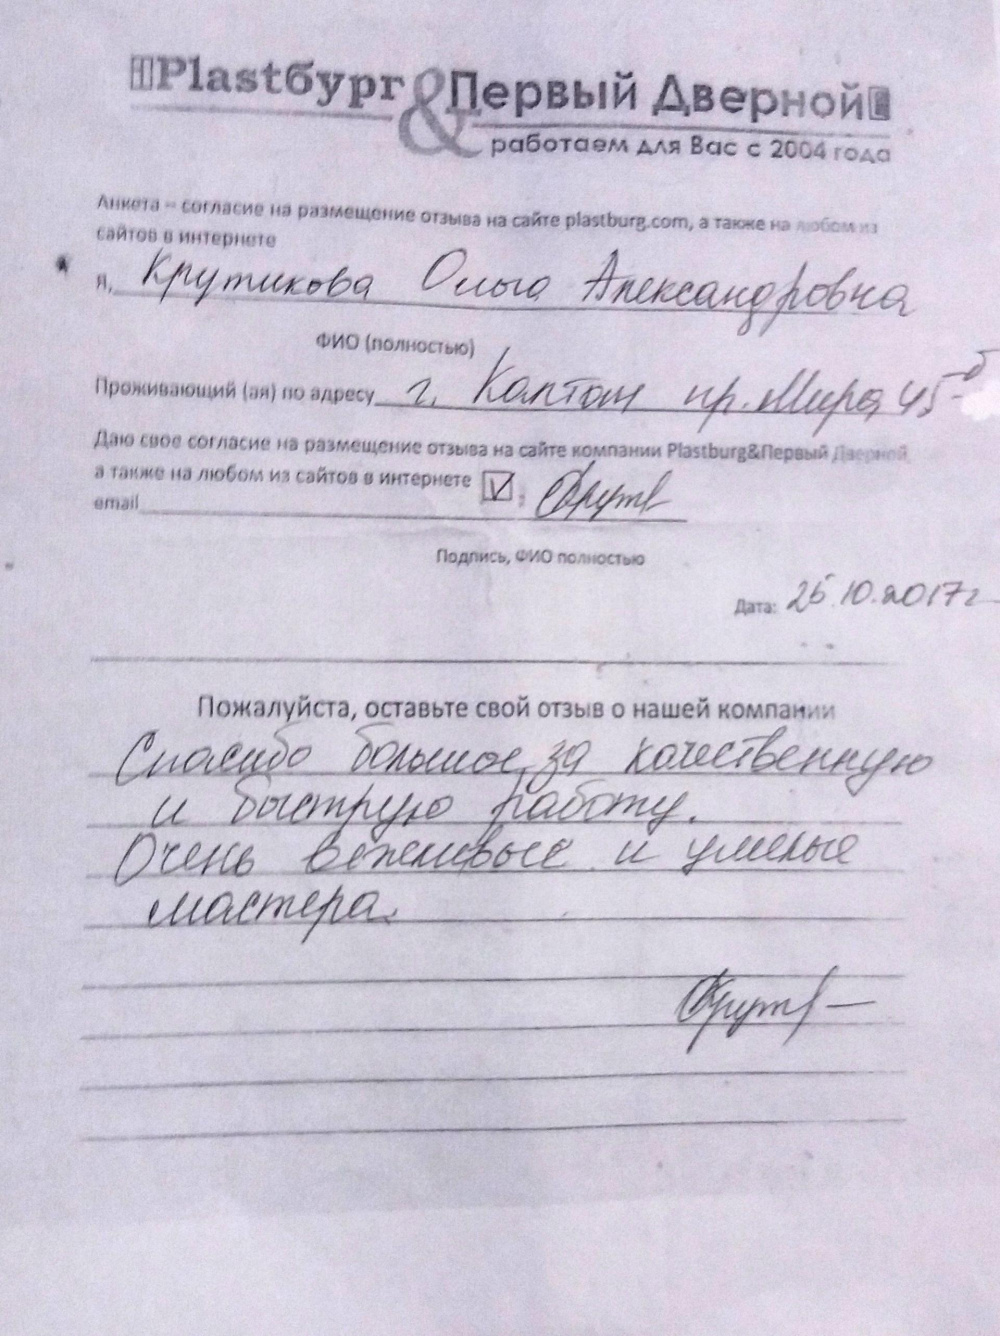 Plastбург & Первый Дверной
работаем для Вас с 2004 года
Анкета – согласие на размещение отзыва на сайте plastburg.com, а также на любом из
сайтов в интернете
я, Крутикова Ольга Александровна
ФИО (полностью)
Проживающий (ая) по адресу г. Калтан пр. Мира 45
Даю свое согласие на размещение отзыва на сайте компании Plastburg&Первый Дверной
а также на любом из сайтов в интернете V,
email
Подпись, ФИО полностью
Дата: 25.10.2017г
Пожалуйста, оставьте свой отзыв о нашей компании
Спасибо большое за качественную
и быструю работу.
Очень вежливые и умелые
мастера.